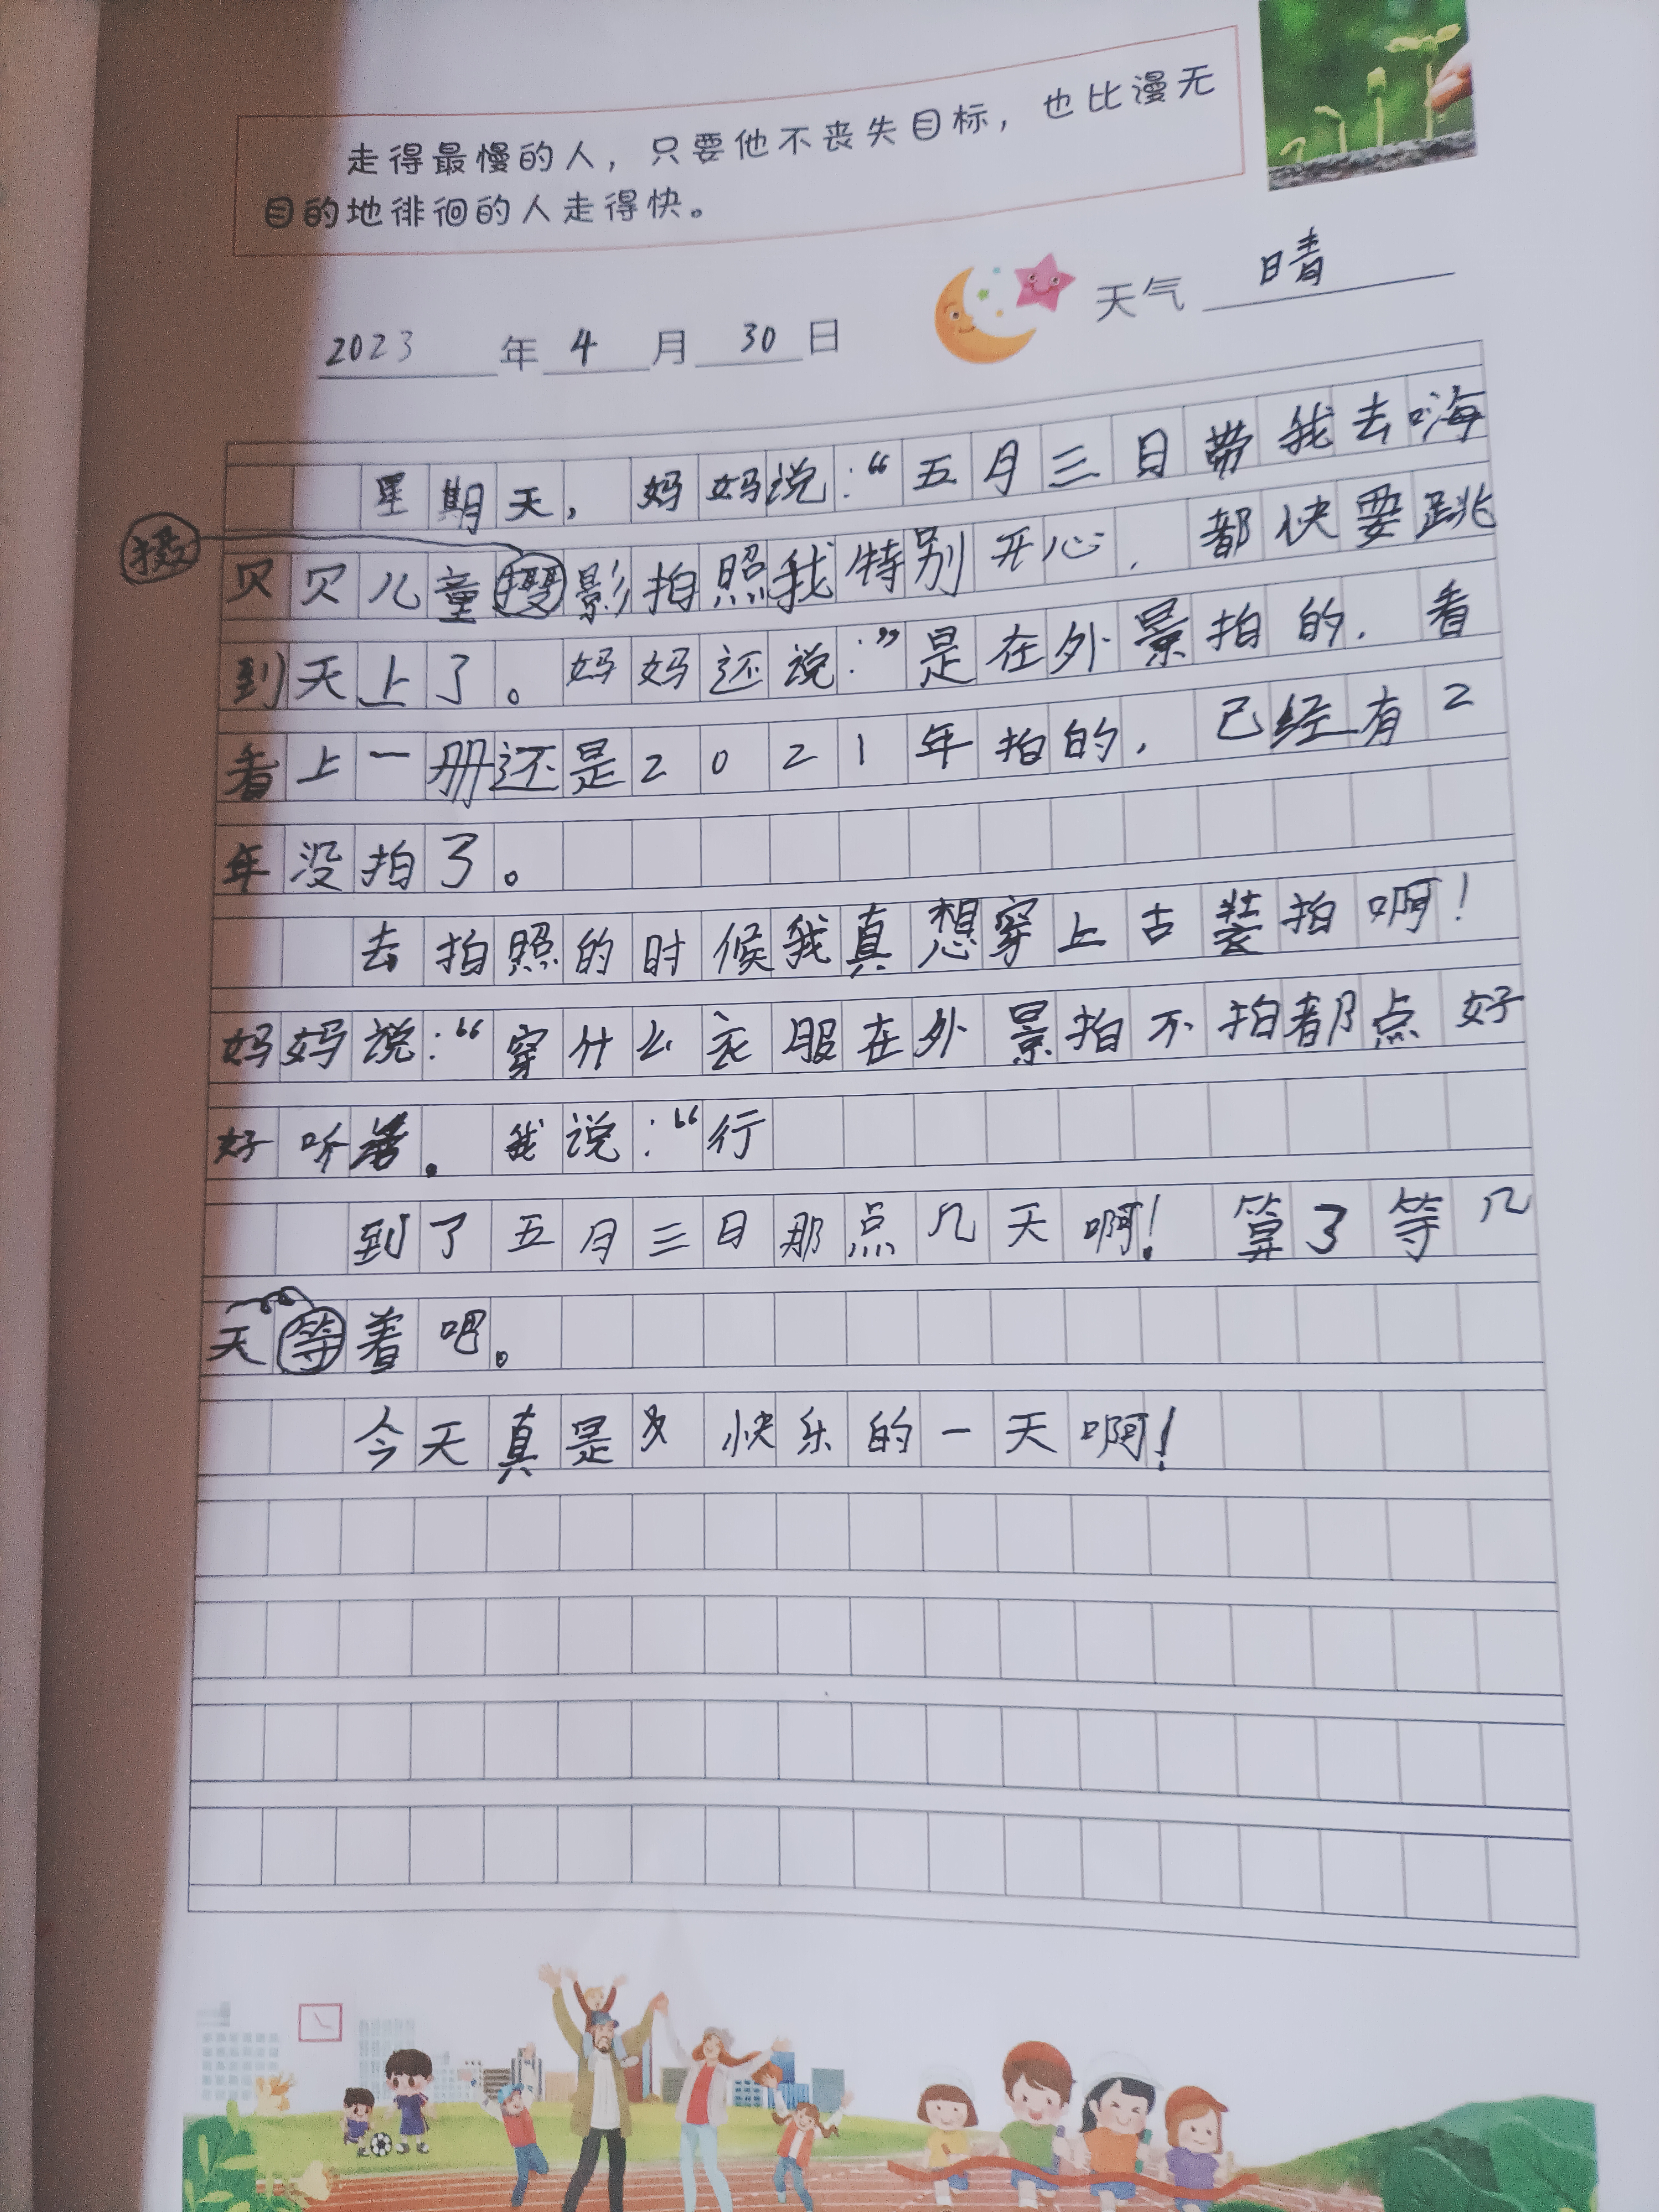 走得最慢的人，只要他不丧失目标，也比漫无
目的地徘徊的人走得快。
天气 晴
2023 年 4 月 30 日
星期天，妈妈说：“五月三日带我去嗨
摄
贝贝儿童摄影拍照我特别开心，都快要跳
到天上了。妈妈还说：”是在外景拍的，看
看上一册还是2021年拍的，已经有2
年没拍了。
去拍照的时候我真想穿上古装拍啊！
妈妈说：“穿什么衣服在外景拍不拍都点好
好听着。我说：“行
到了五月三日那点几天啊！算了等几
天等着吧。
今天真是快乐的一天啊！